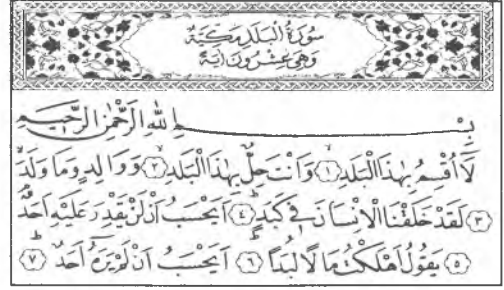 سُوْرَةُ الْبَلَدِ مَكِّيَّةٌ
وَهِيَ عِشْرُوْنَ اٰيَةً
بِسْمِ اللّٰهِ الرَّحْمٰنِ الرَّحِيْمِ
لَاۤ اُقْسِمُ بِهٰذَا الْبَلَدِ ۙ﴿۱﴾ وَاَنْتَ حِلٌّۢ بِهٰذَا الْبَلَدِ ۙ﴿۲﴾ وَوَالِدٍ وَّمَا وَلَدَ ۙ
﴿۳﴾ لَقَدْ خَلَقْنَا الْاِنْسَانَ فِيْ كَبَدٍ ؕ﴿۴﴾ اَيَحْسَبُ اَنْ لَّنْ يَّقْدِرَ عَلَيْهِ اَحَدٌ ۘ
﴿۵﴾ يَقُوْلُ اَهْلَكْتُ مَالًا لُّبَدًا ؕ﴿۶﴾ اَيَحْسَبُ اَنْ لَّمْ يَرَهٗۤ اَحَدٌ ؕ﴿۷﴾